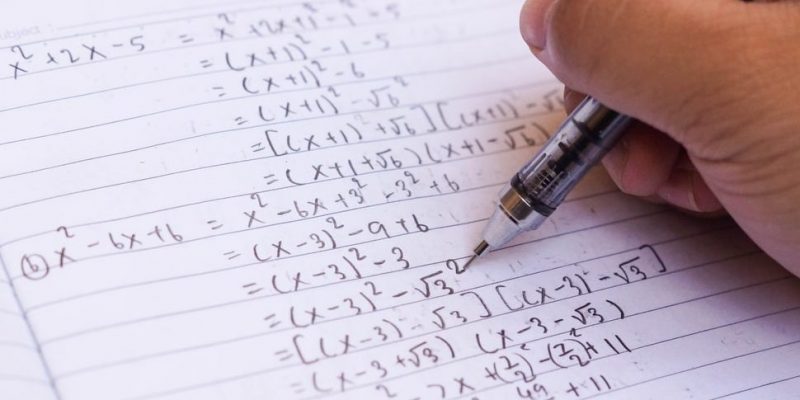 x² + 2x - 5 = x² + 2x + 1² - 1² - 5
= (x+1)² - 1 - 5
= (x+1)² - 6
= (x+1)² - √6²
= [(x+1) + √6][(x+1) - √6
= (x+1+√6)(x+1-√6)
(b) x² - 6x + 6 = x² - 6x + 3² - 3² + 6
= (x-3)² - 9 + 6
= (x-3)² - 3
= (x-3)² - √3²
= [(x-3) - √3][(x-3) - √3]
= (x-3+√3)(x-3-√3)
7x + (7/2)² - (7/2)² + 11
49 + 11